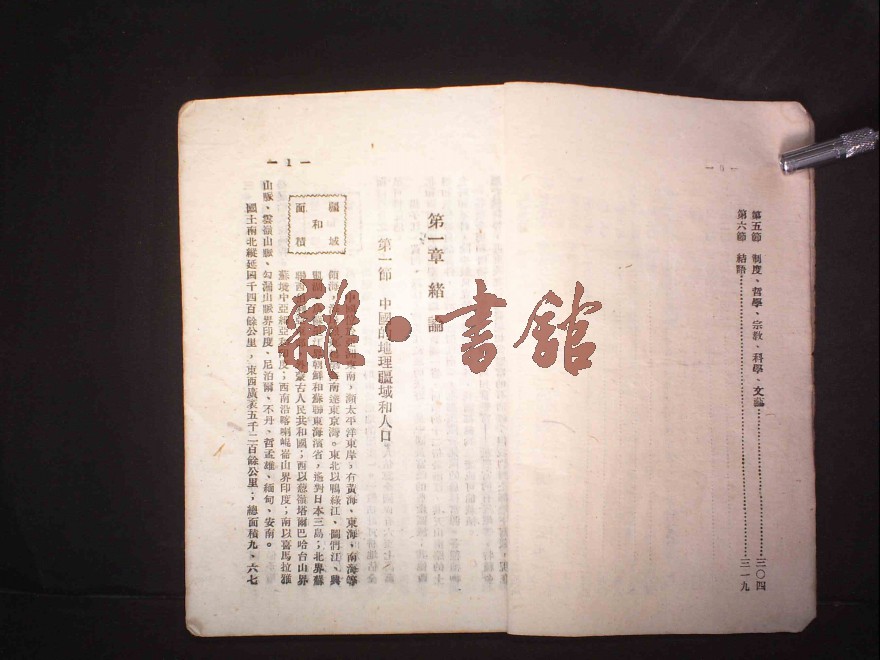 — 5 —
第五節　制度、哲學、宗教、科學、文藝……………三〇四
第六節　結語……………三一九
第一章　緒論
第一節　中國的地理疆域和人口
疆域
和
面積
南，瀕太平洋東岸，有黃海、東海、南海等
領海，南達東京灣。東北以鴨綠江、圖們江、興
朝鮮和蘇聯東海濱省，遙對日本三島；北界蘇
蒙古人民共和國；西以葱嶺塔爾巴哈台山界
蘇境中亞細亞和印度；西南沿喀喇崐崙山界印度；南以喜馬拉雅
山脈、雲嶺山脈、勾漏山脈界印度、尼泊爾、不丹、哲孟雄、緬甸、安南。
國土南北縱延四千四百餘公里，東西廣袤五千二百餘公里；總面積九、六七
— 1 —
雜·書館